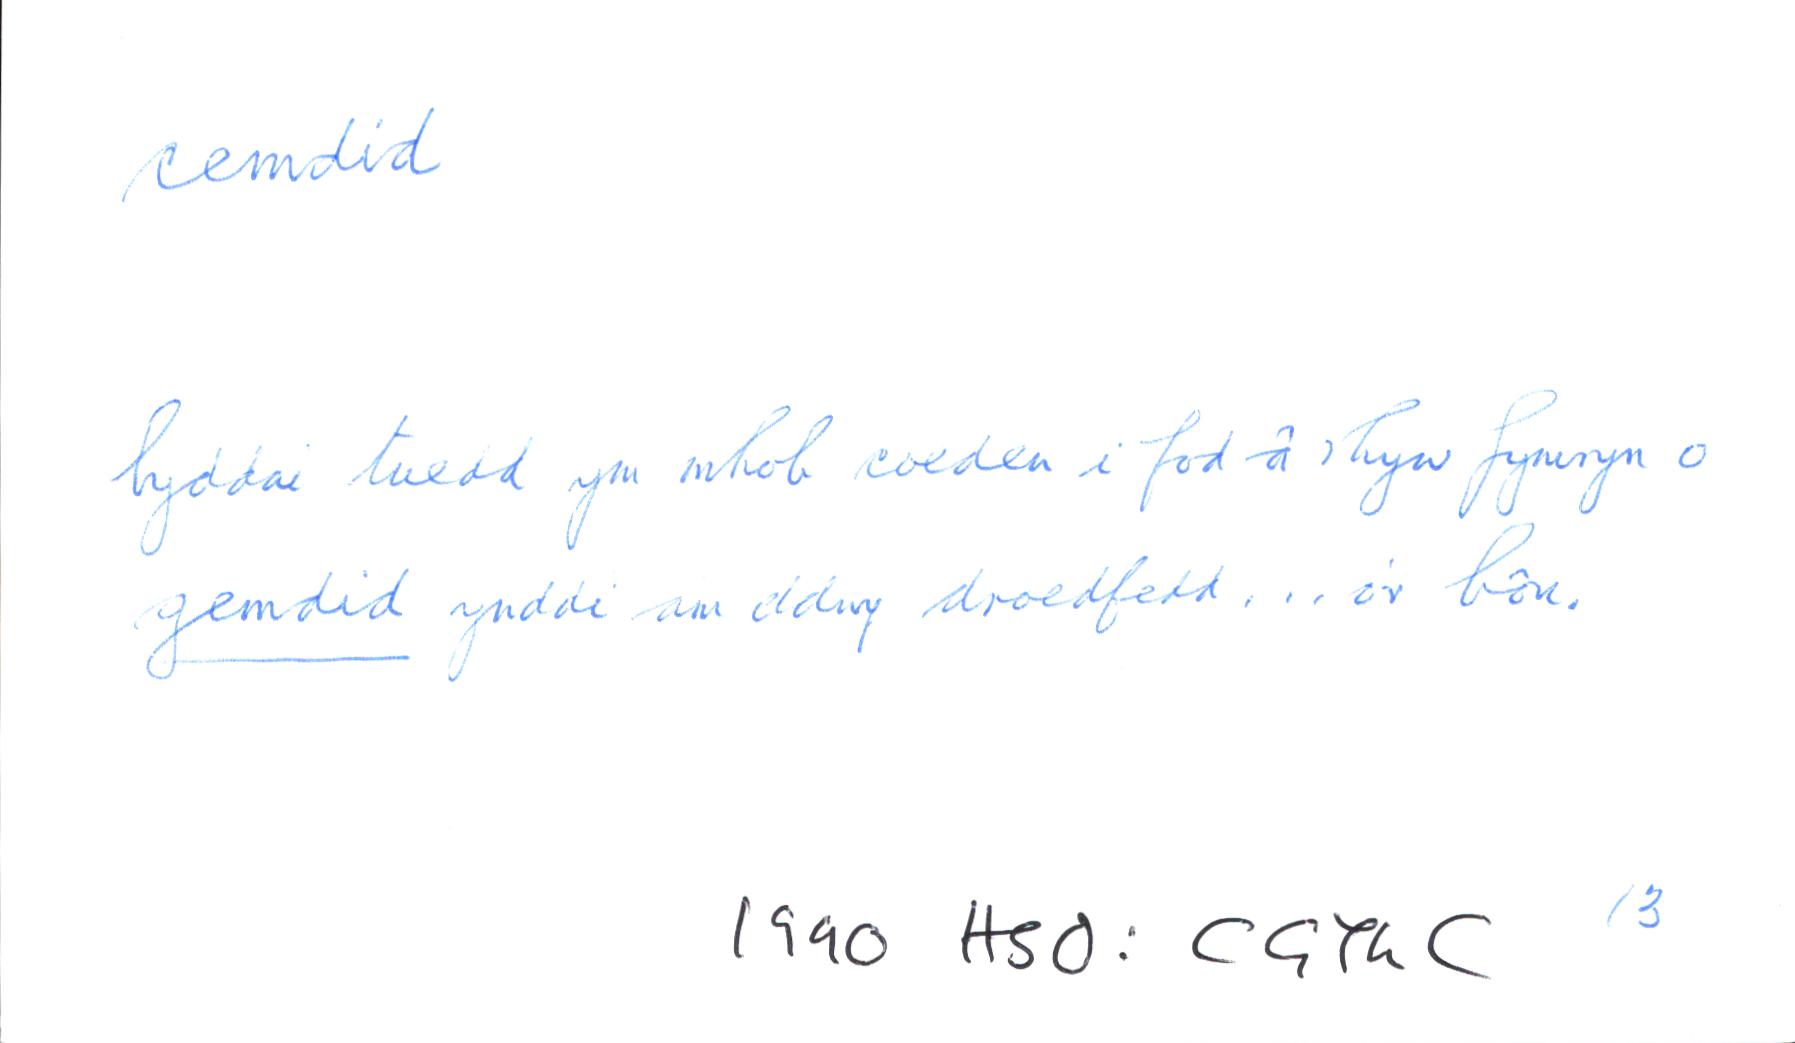 cemdid
byddai tuedd ym mhob coeden i fod â rhyw fymryn o
gemdid ynddi am ddwy droedfedd... o'r bôn.
1990 HSO: CGYNC 13